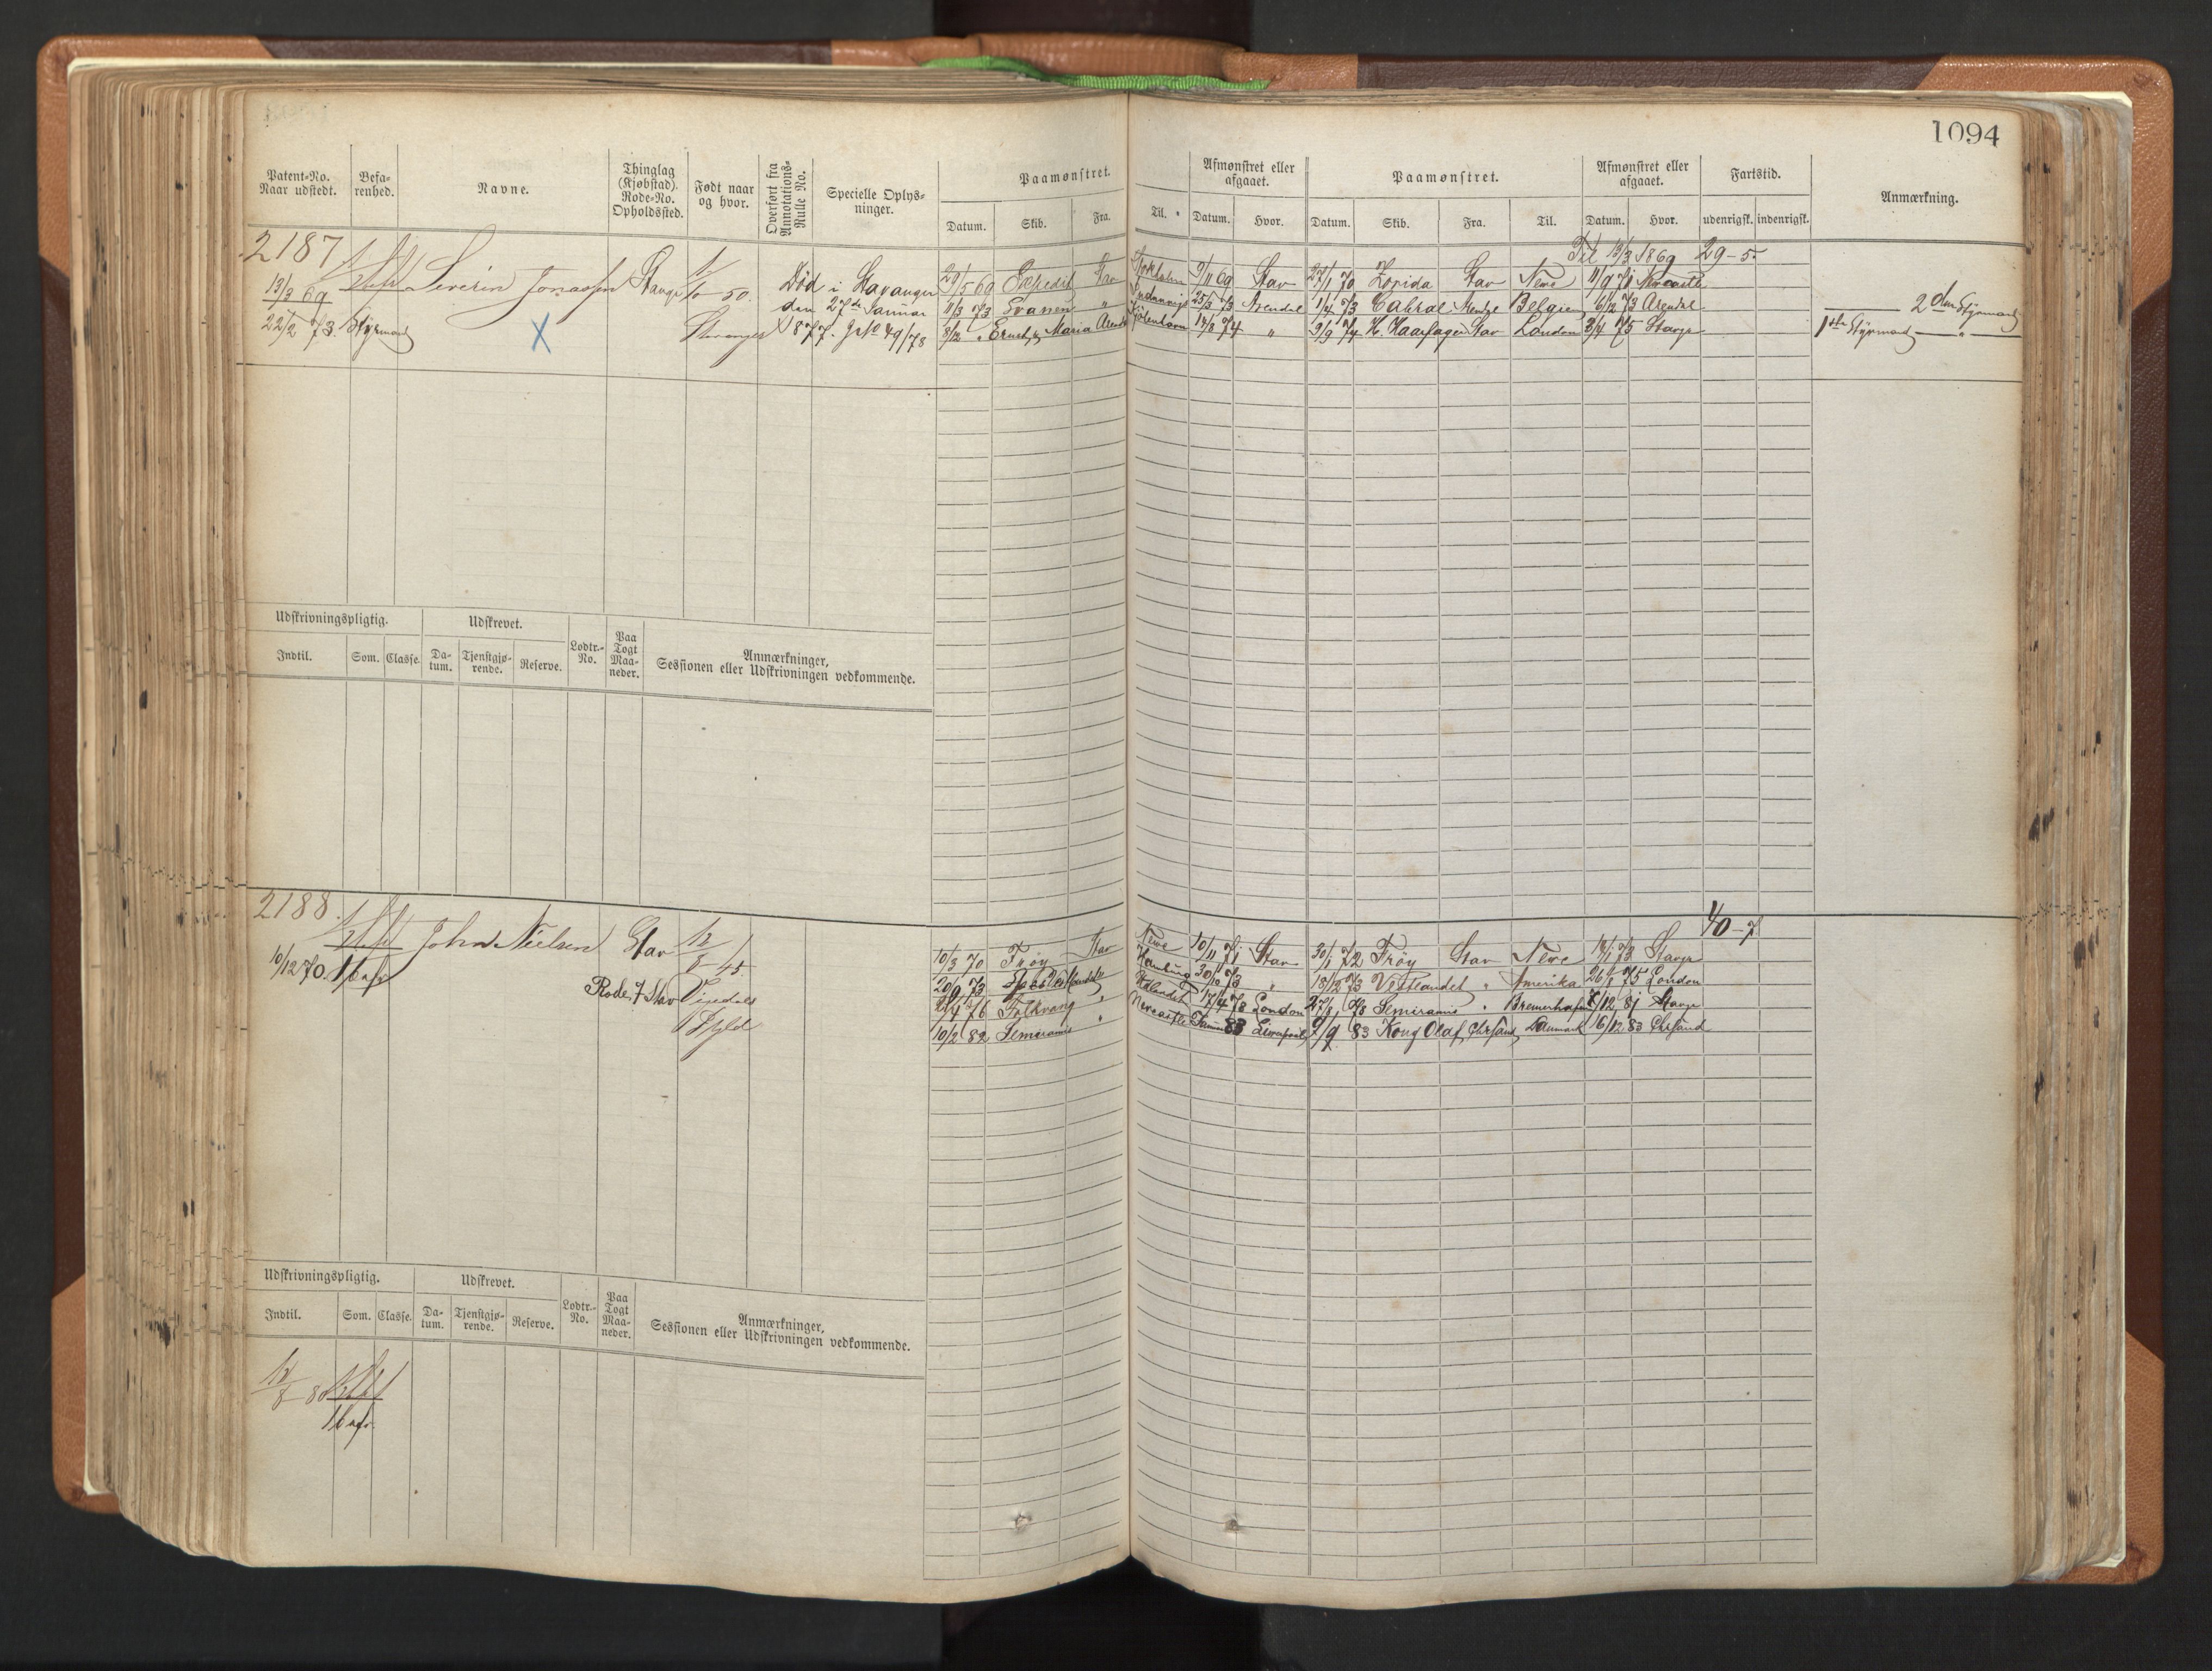 1094
Patent-No. Naar udstedt.
Befa-renhed.
Navne.
Thinglag (Kjøbstad). Rode-No. Opholdssted.
Født naar og hvor.
Overført fra Annotations-Rulle No.
Specielle Oplys-ninger.
Paamønstret.
Datum. Skib. Fra. Til.
Afmønstret eller afgaaet.
Datum. Hvor.
Paamønstret.
Datum. Skib. Fra. Til.
Afmønstret eller afgaaet.
Datum. Hvor.
Fartstid.
udenrigsk. indenrigsk.
Anmærkning.
2187
Til 13/3 1869 29-5
13/3 69 Severin Jonassen Stavgr 1/10 50. Død i Stavanger
den 27de Januar
22/2 73. Styrmand Stavanger 1877. J No 49/78
X
29/5 69 Stav 9/11 69 Stav 27/1 70 Zorida Stav Newc 11/9 71 Newcastle
11/3 73 Svanen " 25/3 73 Arendal 1/4 73 Cabral Arendl Belgien 6/12 73 Arendal 2den Styrmand
8/12 " Maria Arendl Kjøbenhavn 14/8 74 " 9/9 74 H. Haarfager Stav London 3/4 75 Stavgr 1ste Styrmand "
Udskrivningspligtig.
Udskrevet.
Indtil. Som. Classe. Da-tum. Tjenstgjø-rende. Reserve. Lodtr.-No. Paa Togt Maa-neder.
Anmærkninger, Sessionen eller Udskrivningen vedkommende.
2188
40-7
10/12 70. John Nielsen Stav 12/8 45
Rode 7 Stav
10/3 70 Frøy Stav Newc 10/11 71 Stav 30/1 72 Frøy Stav Newc 18/1 73 Stavgr
20/9 73 Hamburg 30/10 73 " 18/12 73 Vestlandet " Amerika 26/1 75 London
2/4 76 Folkvang " 17/4 78 London 27/8 78 Semiramis " Bremerhafen 7/12 81 Stavgr
10/2 82 Semiramis " Newcastle 83 Liverpool 9/9 83 Kong Olaf Chrsand Danmark 16/12 83 Chrsand
Udskrivningspligtig.
Udskrevet.
Indtil. Som. Classe. Da-tum. Tjenstgjø-rende. Reserve. Lodtr.-No. Paa Togt Maa-neder.
Anmærkninger, Sessionen eller Udskrivningen vedkommende.
12/8 80